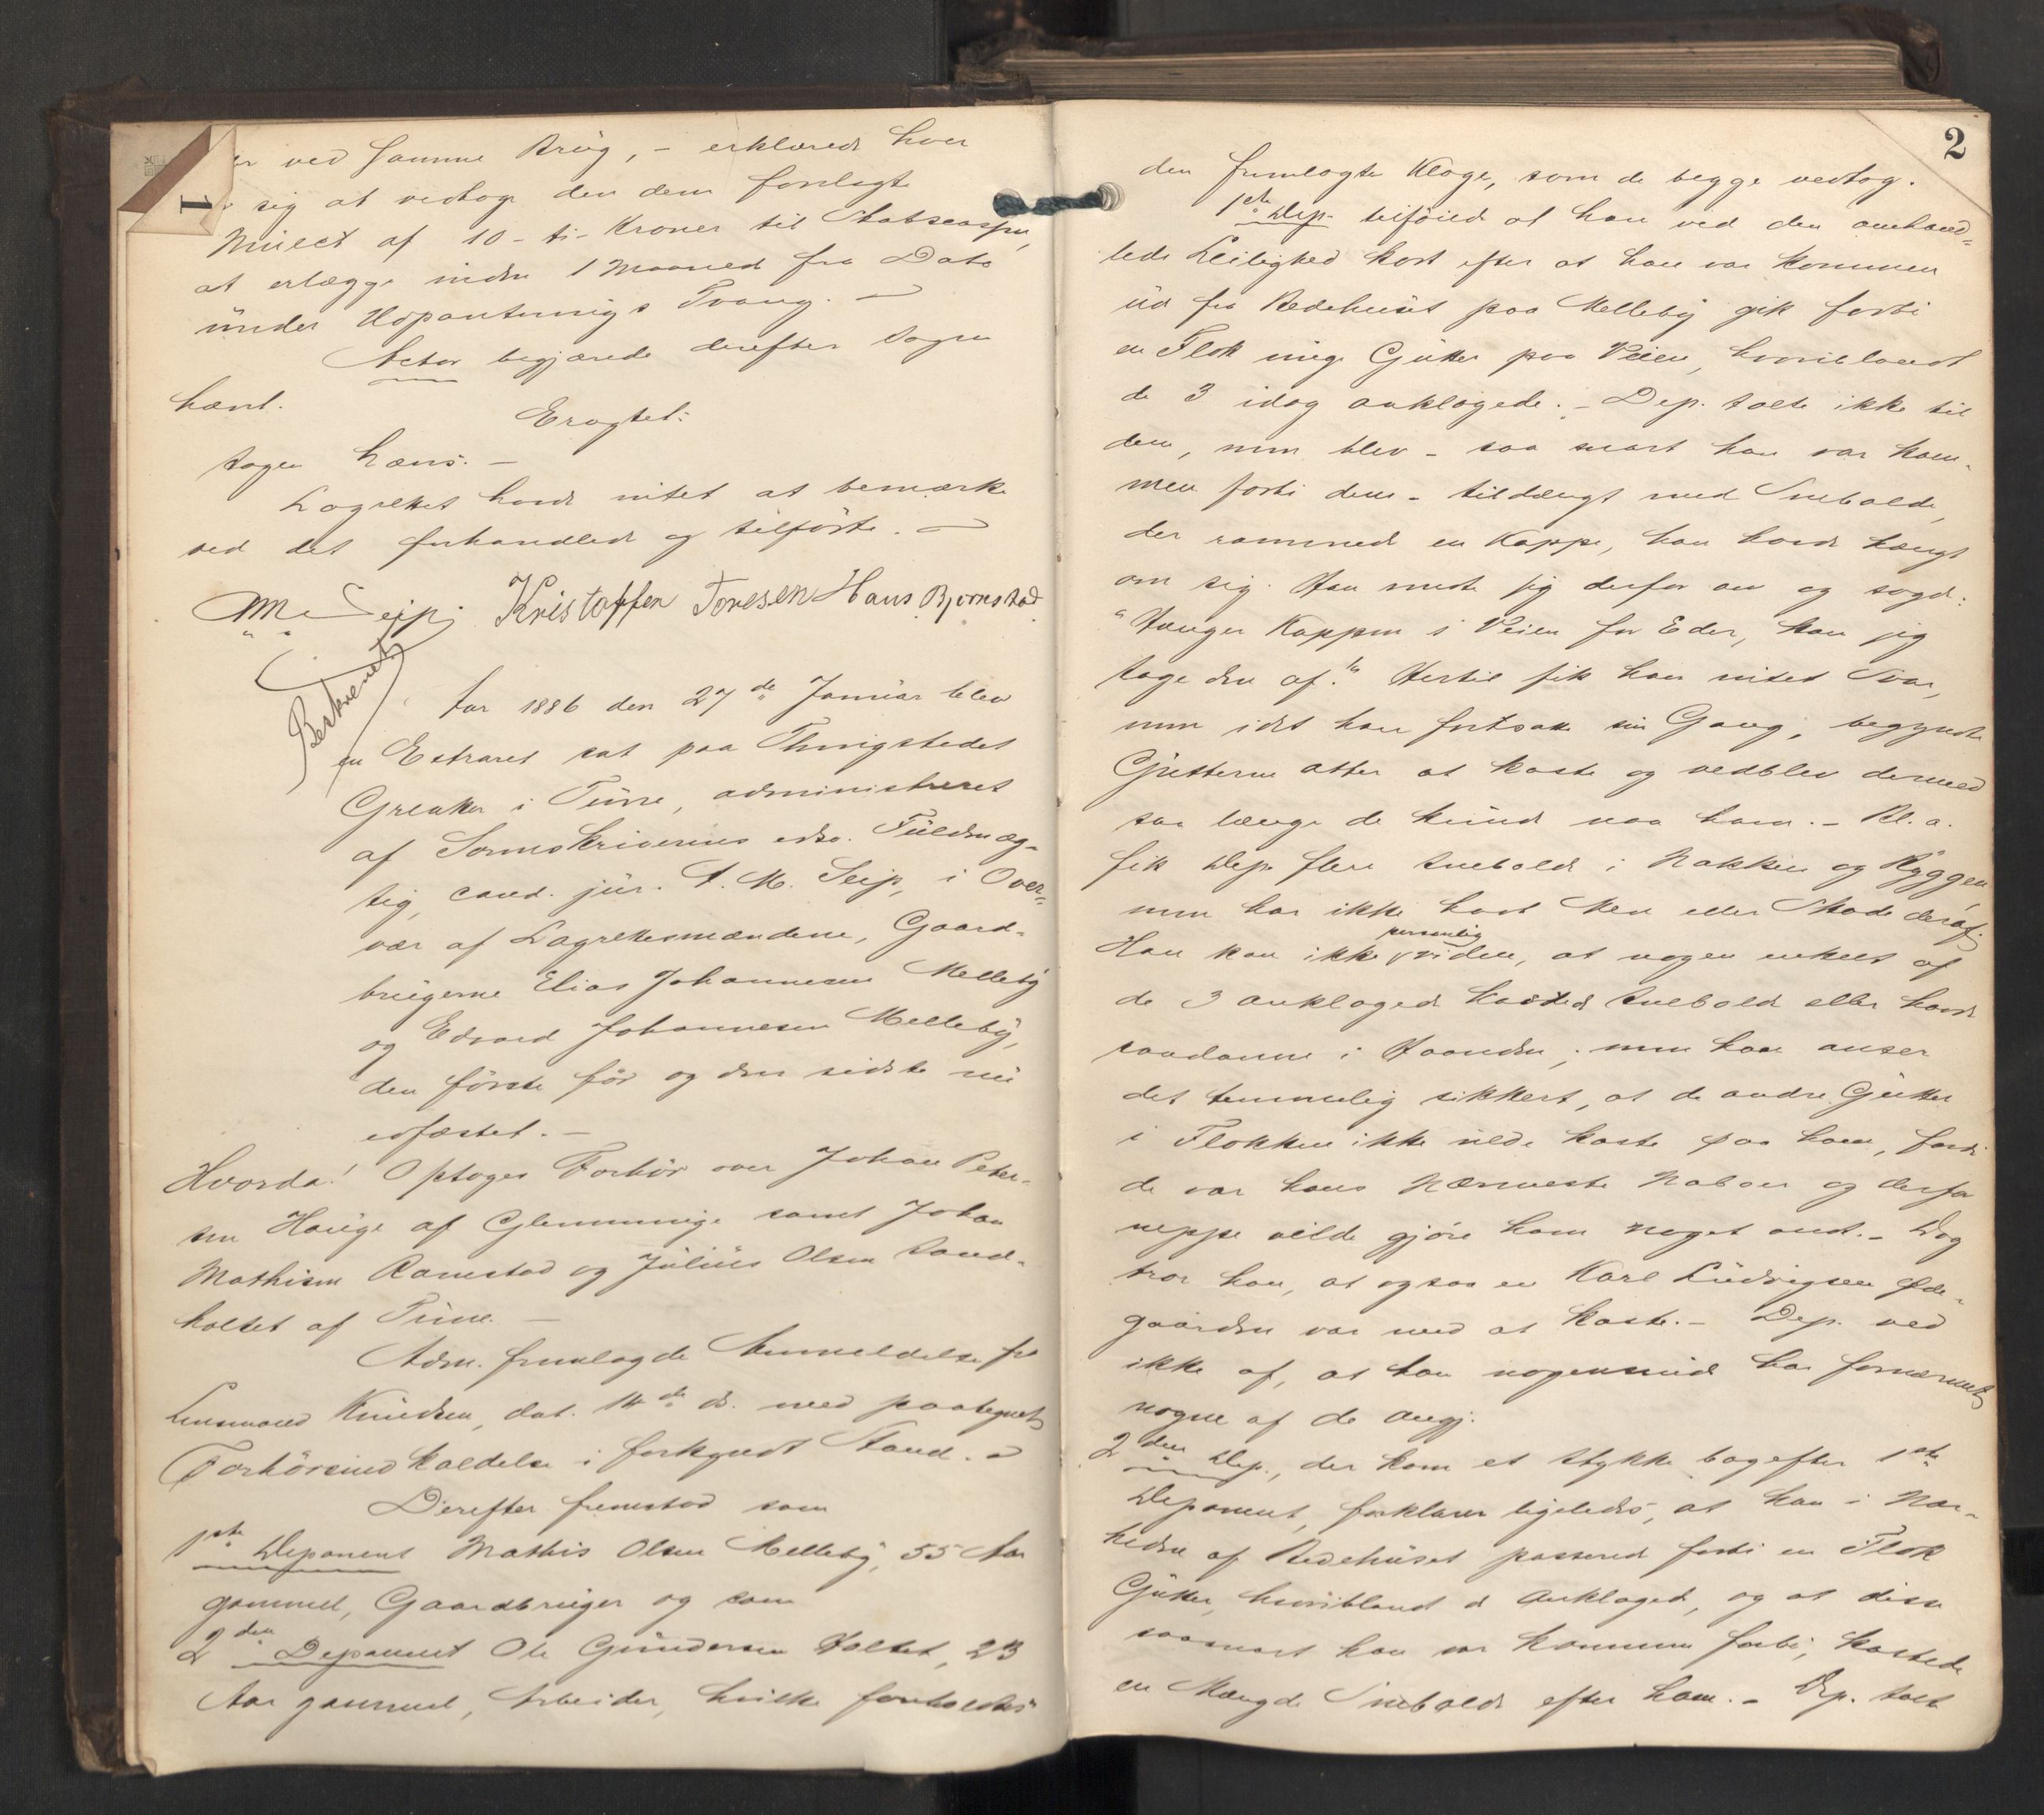 er ved samme Brug, - erklærede hver
sig at vedtage den dem forelagte
Mulct af 10 - ti - Kroner til Statscassen,
at erlægge inden 1 Maaned fra Dato
under Udpantnings Tvang. -
Actor begjærede derefter Sagen
hævet.
Eragtet:
Sagen hæves. -
Lagrettet havde intet at bemærke
ved det forhandlede og tilførte. -
A M Seip. Kristoffer Toresen Hans Bjørnstad
Beskrevet
Aar 1886 den 27de Januar blev
en Extraret sat paa Thingstedet
Greaker i Tune, administreret
af Sorenskriverens edsv. Fuldmæg-
tig, cand. jur. A. M. Seip, i Over-
vær af Lagrettesmændene, Gaard-
brugerne Elias Johannesen Melleby
og Edvard Johannesen Melleby,
den første før og den sidste nu
edfæstet. -
Hvorda! Optoges Forhør over Johan Peter-
sen Hauge af Glemminge samt Johan
Mathisen Ramstad og Julius Olsen Sand-
holtet af Tune. -
Adm. fremlagde Anmeldelse fra
Lensmand Knudsen, dat. 14de ds. med paategnet
Forhørsindkaldelse i forkyndt Stand. -
Derefter fremstod som
1ste Deponent Mathis Olsen Melleby, 55 Aar
gammel, Gaardbruger og som
2den Deponent Ole Gundersen Holtet, 23
Aar gammel, Arbeider, hvilke foreholdtes
1
2
den fremlagte Klage, som de begge vedtog.
1ste Dep. tilføied at han ved den omhand-
lede Leilighed kort efter at han var kommen
ud fra Bedehuset paa Melleby gik forbi
en Flok unge Gutter paa Veien, hvoriblandt
de 3 idag anklagede. - Dep. talte ikke til
dem, men blev - saa snart han var kom-
men forbi dem - tildængt med Snebolde,
der rammede en Kappe, han havde hængt
om sig. Han vendte sig derfor om og sagde:
"Hænger Kappen i Veien for Eder, kan jeg
tage den af." Hertil fik han intet Svar,
men idet han fortsatte sin Gang, begyndte
Gutterne atter at kaste og vedblev dermed
saa længe de kunde naa ham. - Bl. a.
fik Dep. flere Snebolde i Nakken og Ryggen
men har ikke havt Men eller Skade deraf.
Han kan ikke personlig viden, at nogen enkelt af
de 3 anklagede kastede Snebolde eller havde
saadanne i Haanden; men han anser
det temmelig sikkert, at de andre Gutter
i Flokken ikke vilde kaste paa ham, fordi
de var hans nærmeste Naboer og derfor
neppe vilde gjøre ham noget ondt. - Dog
tror han, at ogsaa en Karl Ludvigsen Øde-
gaarden var med at kaste. - Dep. ved
ikke af, at han nogensinde har fornærmet
nogen af de angj.
2den Dep., der kom et Stykke bagefter 1ste
Deponent, forklarer ligeledes, at han i Nær-
heden af Bedehuset passerede forbi en Flok
Gutter, hvoriblandt d anklagede, og at disse
saasnart han var kommen forbi, kastede
en Mængde Snebolde efter ham. - Dep. talte